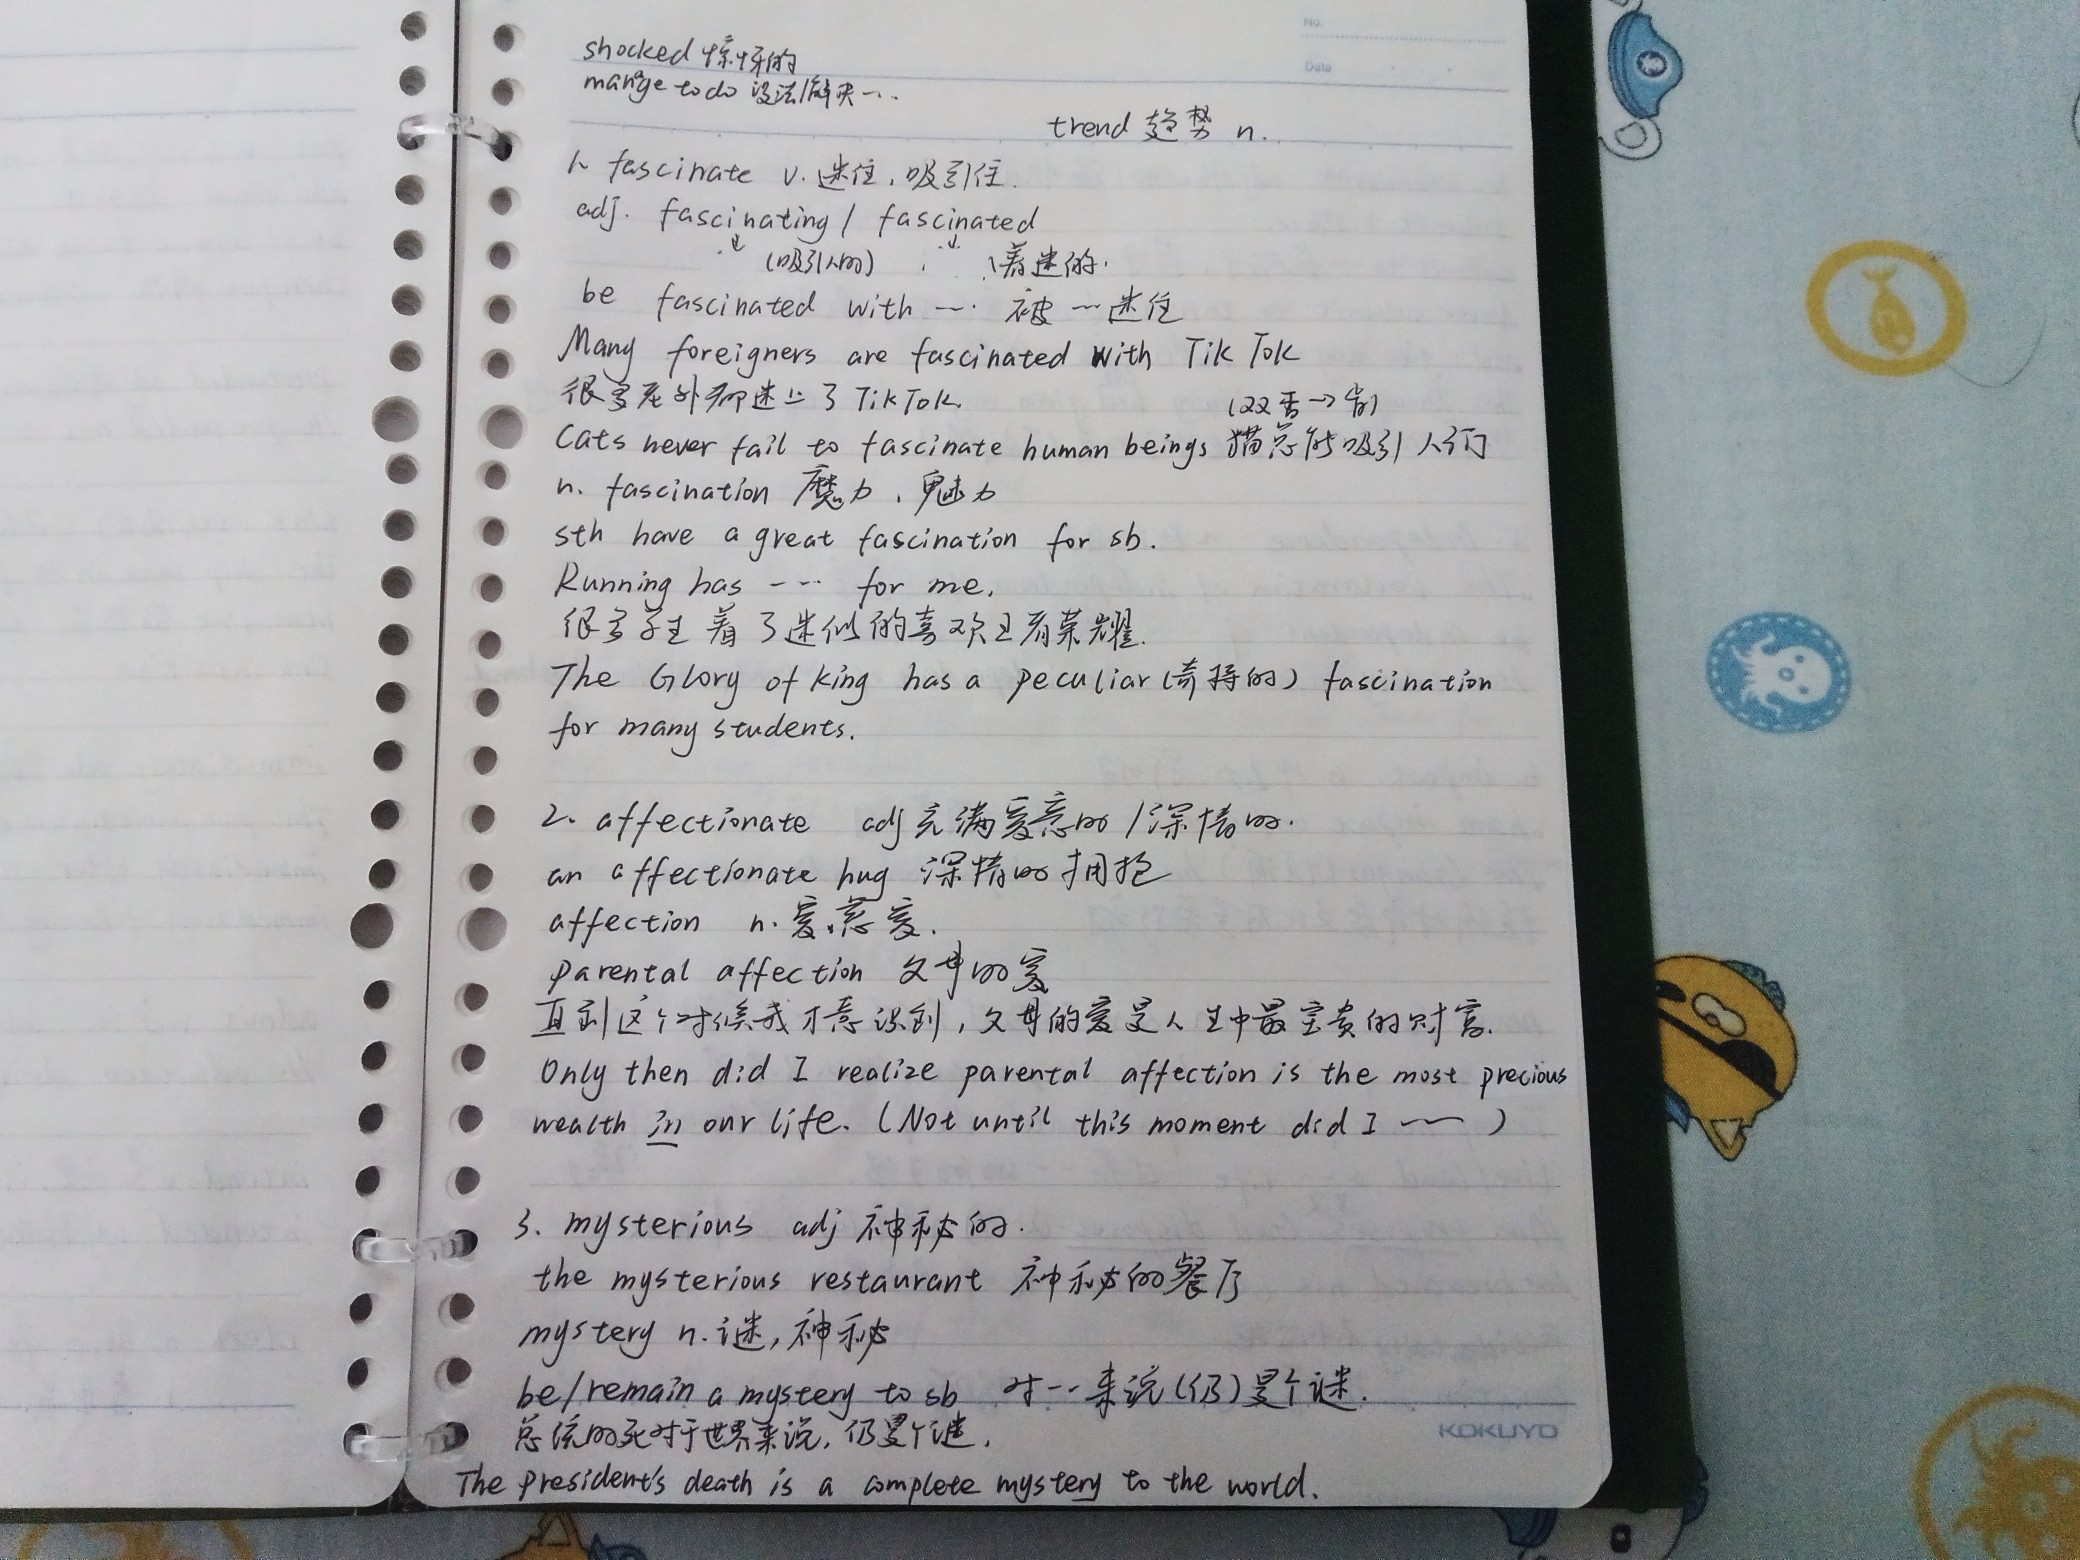 No.
Date
shocked 惊讶的
manage to do 设法解决…
trend 趋势 n.
1. fascinate v. 迷住,吸引住.
adj. fascinating / fascinated
(吸引人的) 着迷的.
be fascinated with … 被…迷住
Many foreigners are fascinated with TikTok
很多老外都迷上了TikTok.
(双否→肯)
Cats never fail to fascinate human beings 猫总能吸引人们
n. fascination 魔力、魅力
sth have a great fascination for sb.
Running has --- for me.
很多学生着了迷似的喜欢王者荣耀.
The Glory of King has a peculiar (奇特的) fascination
for many students.
2. affectionate adj 充满爱意的/深情的.
an affectionate hug 深情的拥抱
affection n. 爱,慈爱.
parental affection 父母的爱
直到这个时候我才意识到,父母的爱是人生中最宝贵的财富.
Only then did I realize parental affection is the most precious
wealth in our life. (Not until this moment did I ~~)
3. mysterious adj 神秘的.
the mysterious restaurant 神秘的餐厅
mystery n. 谜,神秘
be/remain a mystery to sb 对…来说(仍)是个谜.
总统的死对于世界来说,仍是个谜.
The president's death is a complete mystery to the world.
KOKUYO